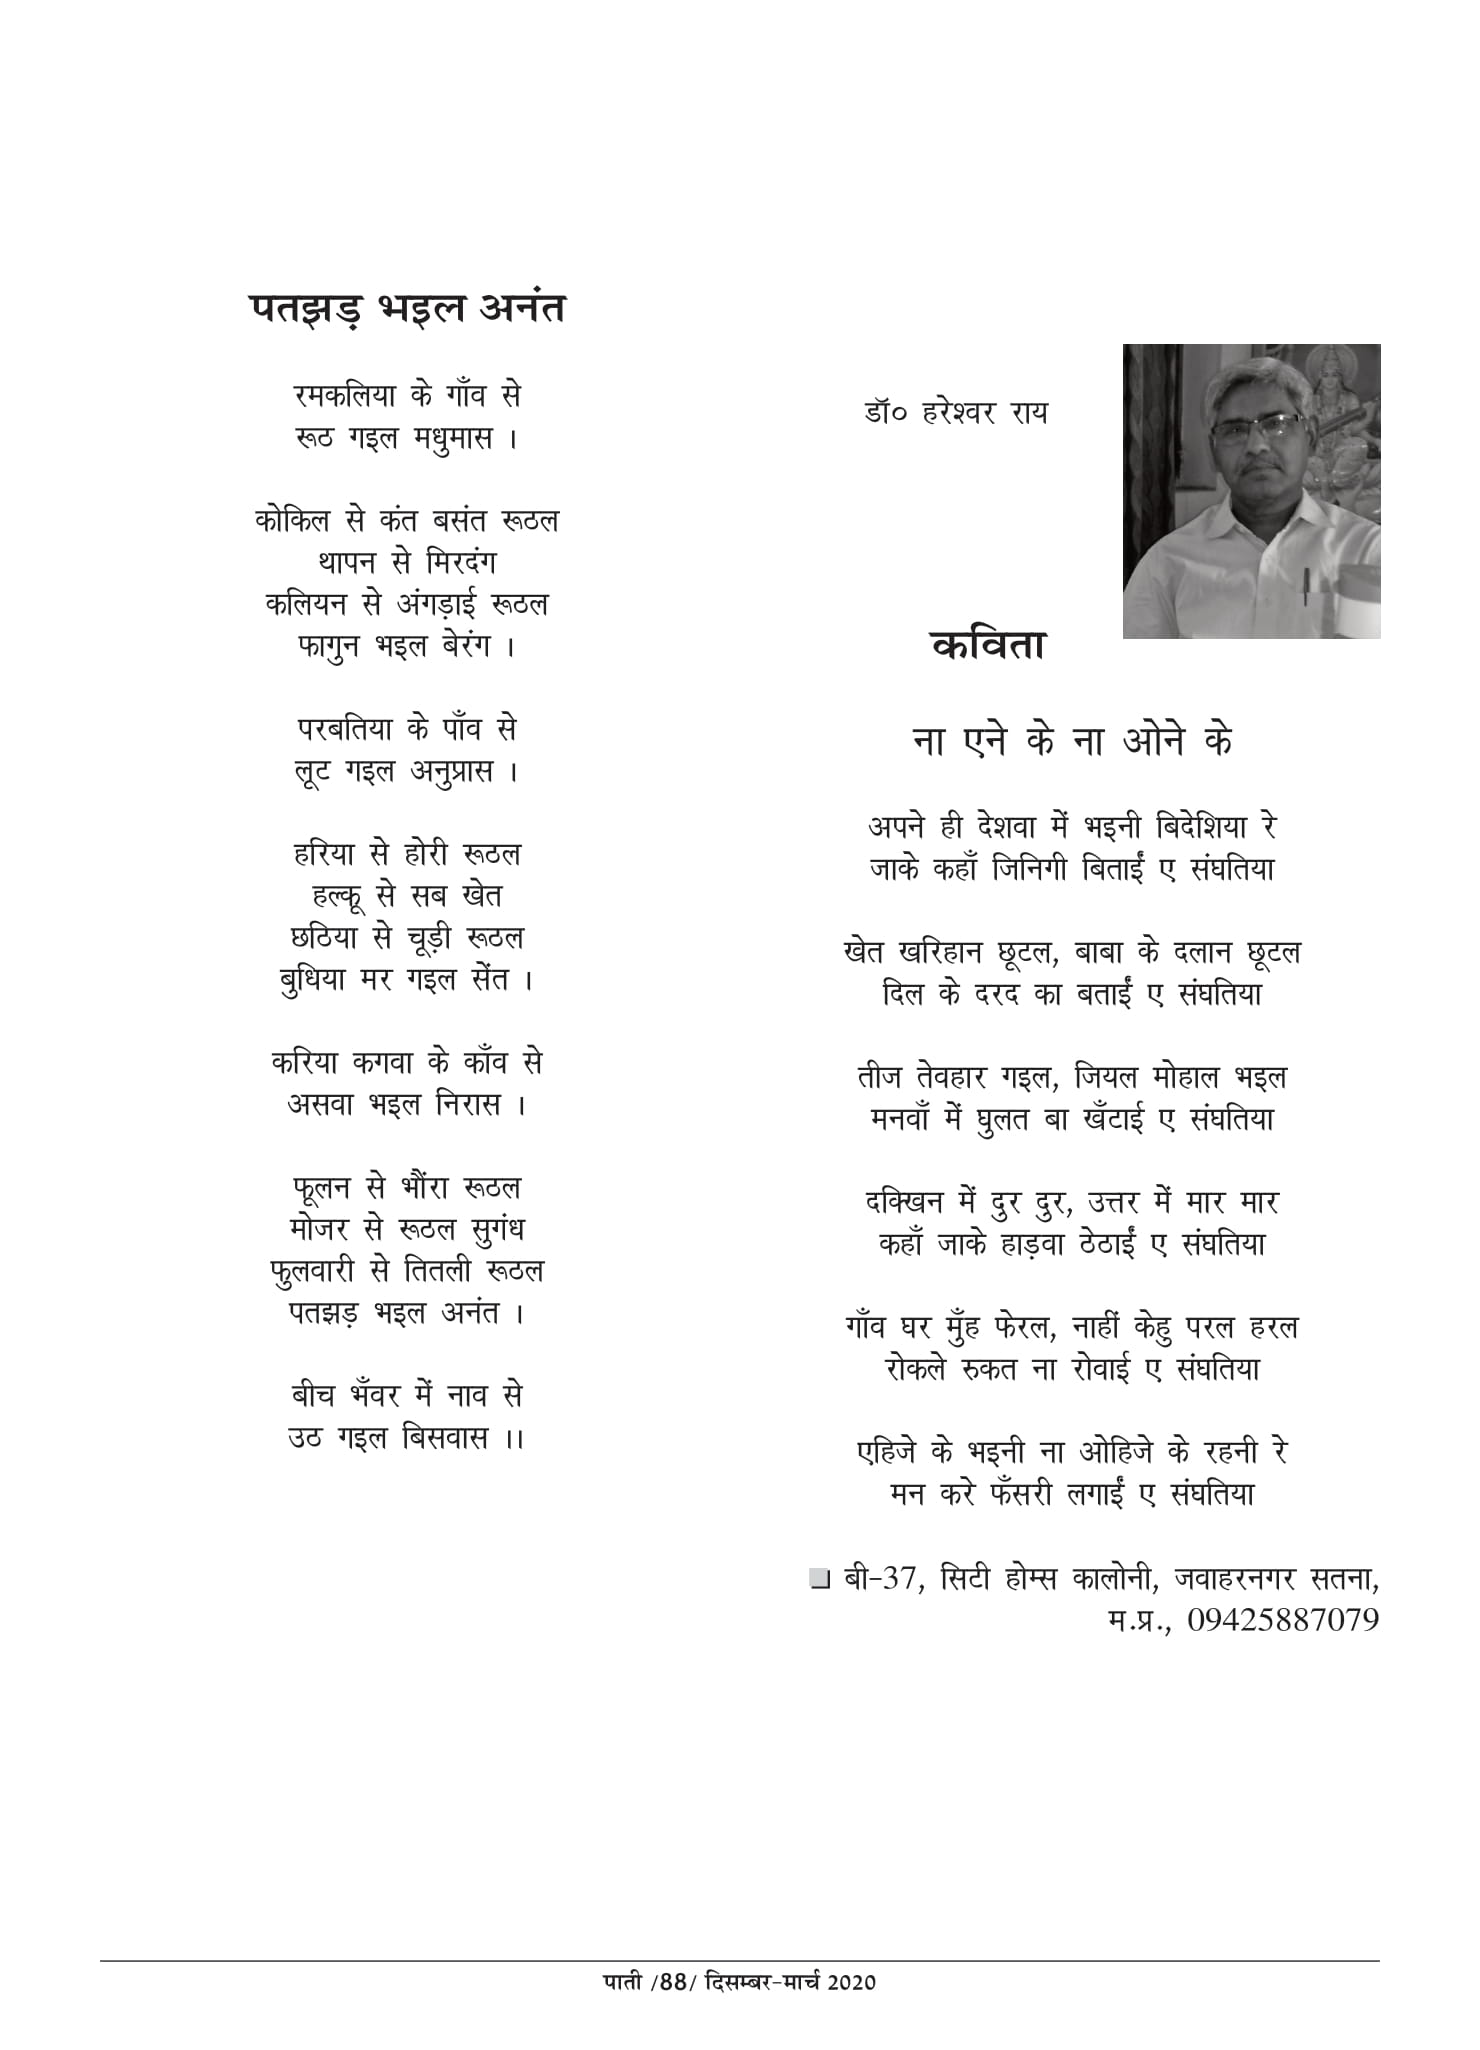 पतझड़ भइल अनंत
रमकलिया के गाँव से
रूठ गइल मधुमास ।
कोकिल से कंत बसंत रूठल
थापन से मिरदंग
कलियन से अंगड़ाई रूठल
फागुन भइल बेरंग ।
परबतिया के पाँव से
लूट गइल अनुप्रास ।
हरिया से होरी रूठल
हल्कू से सब खेत
छठिया से चूड़ी रूठल
बुधिया मर गइल सेंत ।
करिया कगवा के काँव से
असवा भइल निरास ।
फूलन से भौंरा रूठल
मोजर से रूठल सुगंध
फुलवारी से तितली रूठल
पतझड़ भइल अनंत ।
बीच भँवर में नाव से
उठ गइल बिसवास ।।
डॉ० हरेश्वर राय
कविता
ना एने के ना ओने के
अपने ही देशवा में भइनी बिदेशिया रे
जाके कहाँ जिनिगी बिताईं ए संघतिया
खेत खरिहान छूटल, बाबा के दलान छूटल
दिल के दरद का बताईं ए संघतिया
तीज तेवहार गइल, जियल मोहाल भइल
मनवाँ में घुलत बा खँटाई ए संघतिया
दक्खिन में दुर दुर, उत्तर में मार मार
कहाँ जाके हाड़वा ठेठाईं ए संघतिया
गाँव घर मुँह फेरल, नाहीं केहु परल हरल
रोकले रुकत ना रोवाई ए संघतिया
एहिजे के भइनी ना ओहिजे के रहनी रे
मन करे फँसरी लगाईं ए संघतिया
बी-37, सिटी होम्स कालोनी, जवाहरनगर सतना,
म.प्र., 09425887079
पाती /88/ दिसम्बर-मार्च 2020